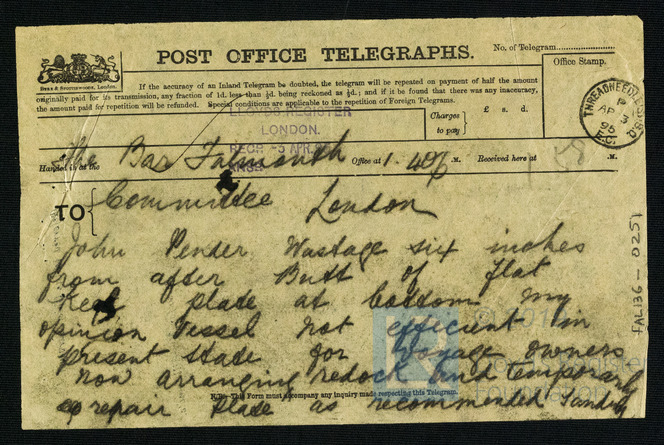 POST OFFICE TELEGRAPHS.
No. of Telegram
Office Stamp.
If the accuracy of an Inland Telegram be doubted, the telegram will be repeated on payment of half the amount
originally paid for its transmission, any fraction of 1d. less than ½d. being reckoned as ½d.; and if it be found that there was any inaccuracy,
the amount paid for repetition will be refunded. Special conditions are applicable to the repetition of Foreign Telegrams.
Charges to pay
£ s. d.
THREADNEEDLE
AP 3
95
E.C.
LLOYD'S REGISTER
LONDON.
Handed in at the Bar Falmouth Office at 1. .M. Received here at .M.
TO Committee London
John Pender Wastage six inches
from after Butt of flat
keel plate at bottom my
opinion Vessel not efficient in
present state for voyage owners
now arranging redock and temporarily
repair plate as recommended
N.B. This Form must accompany any inquiry made respecting this Telegram.
FAL136 - 0251